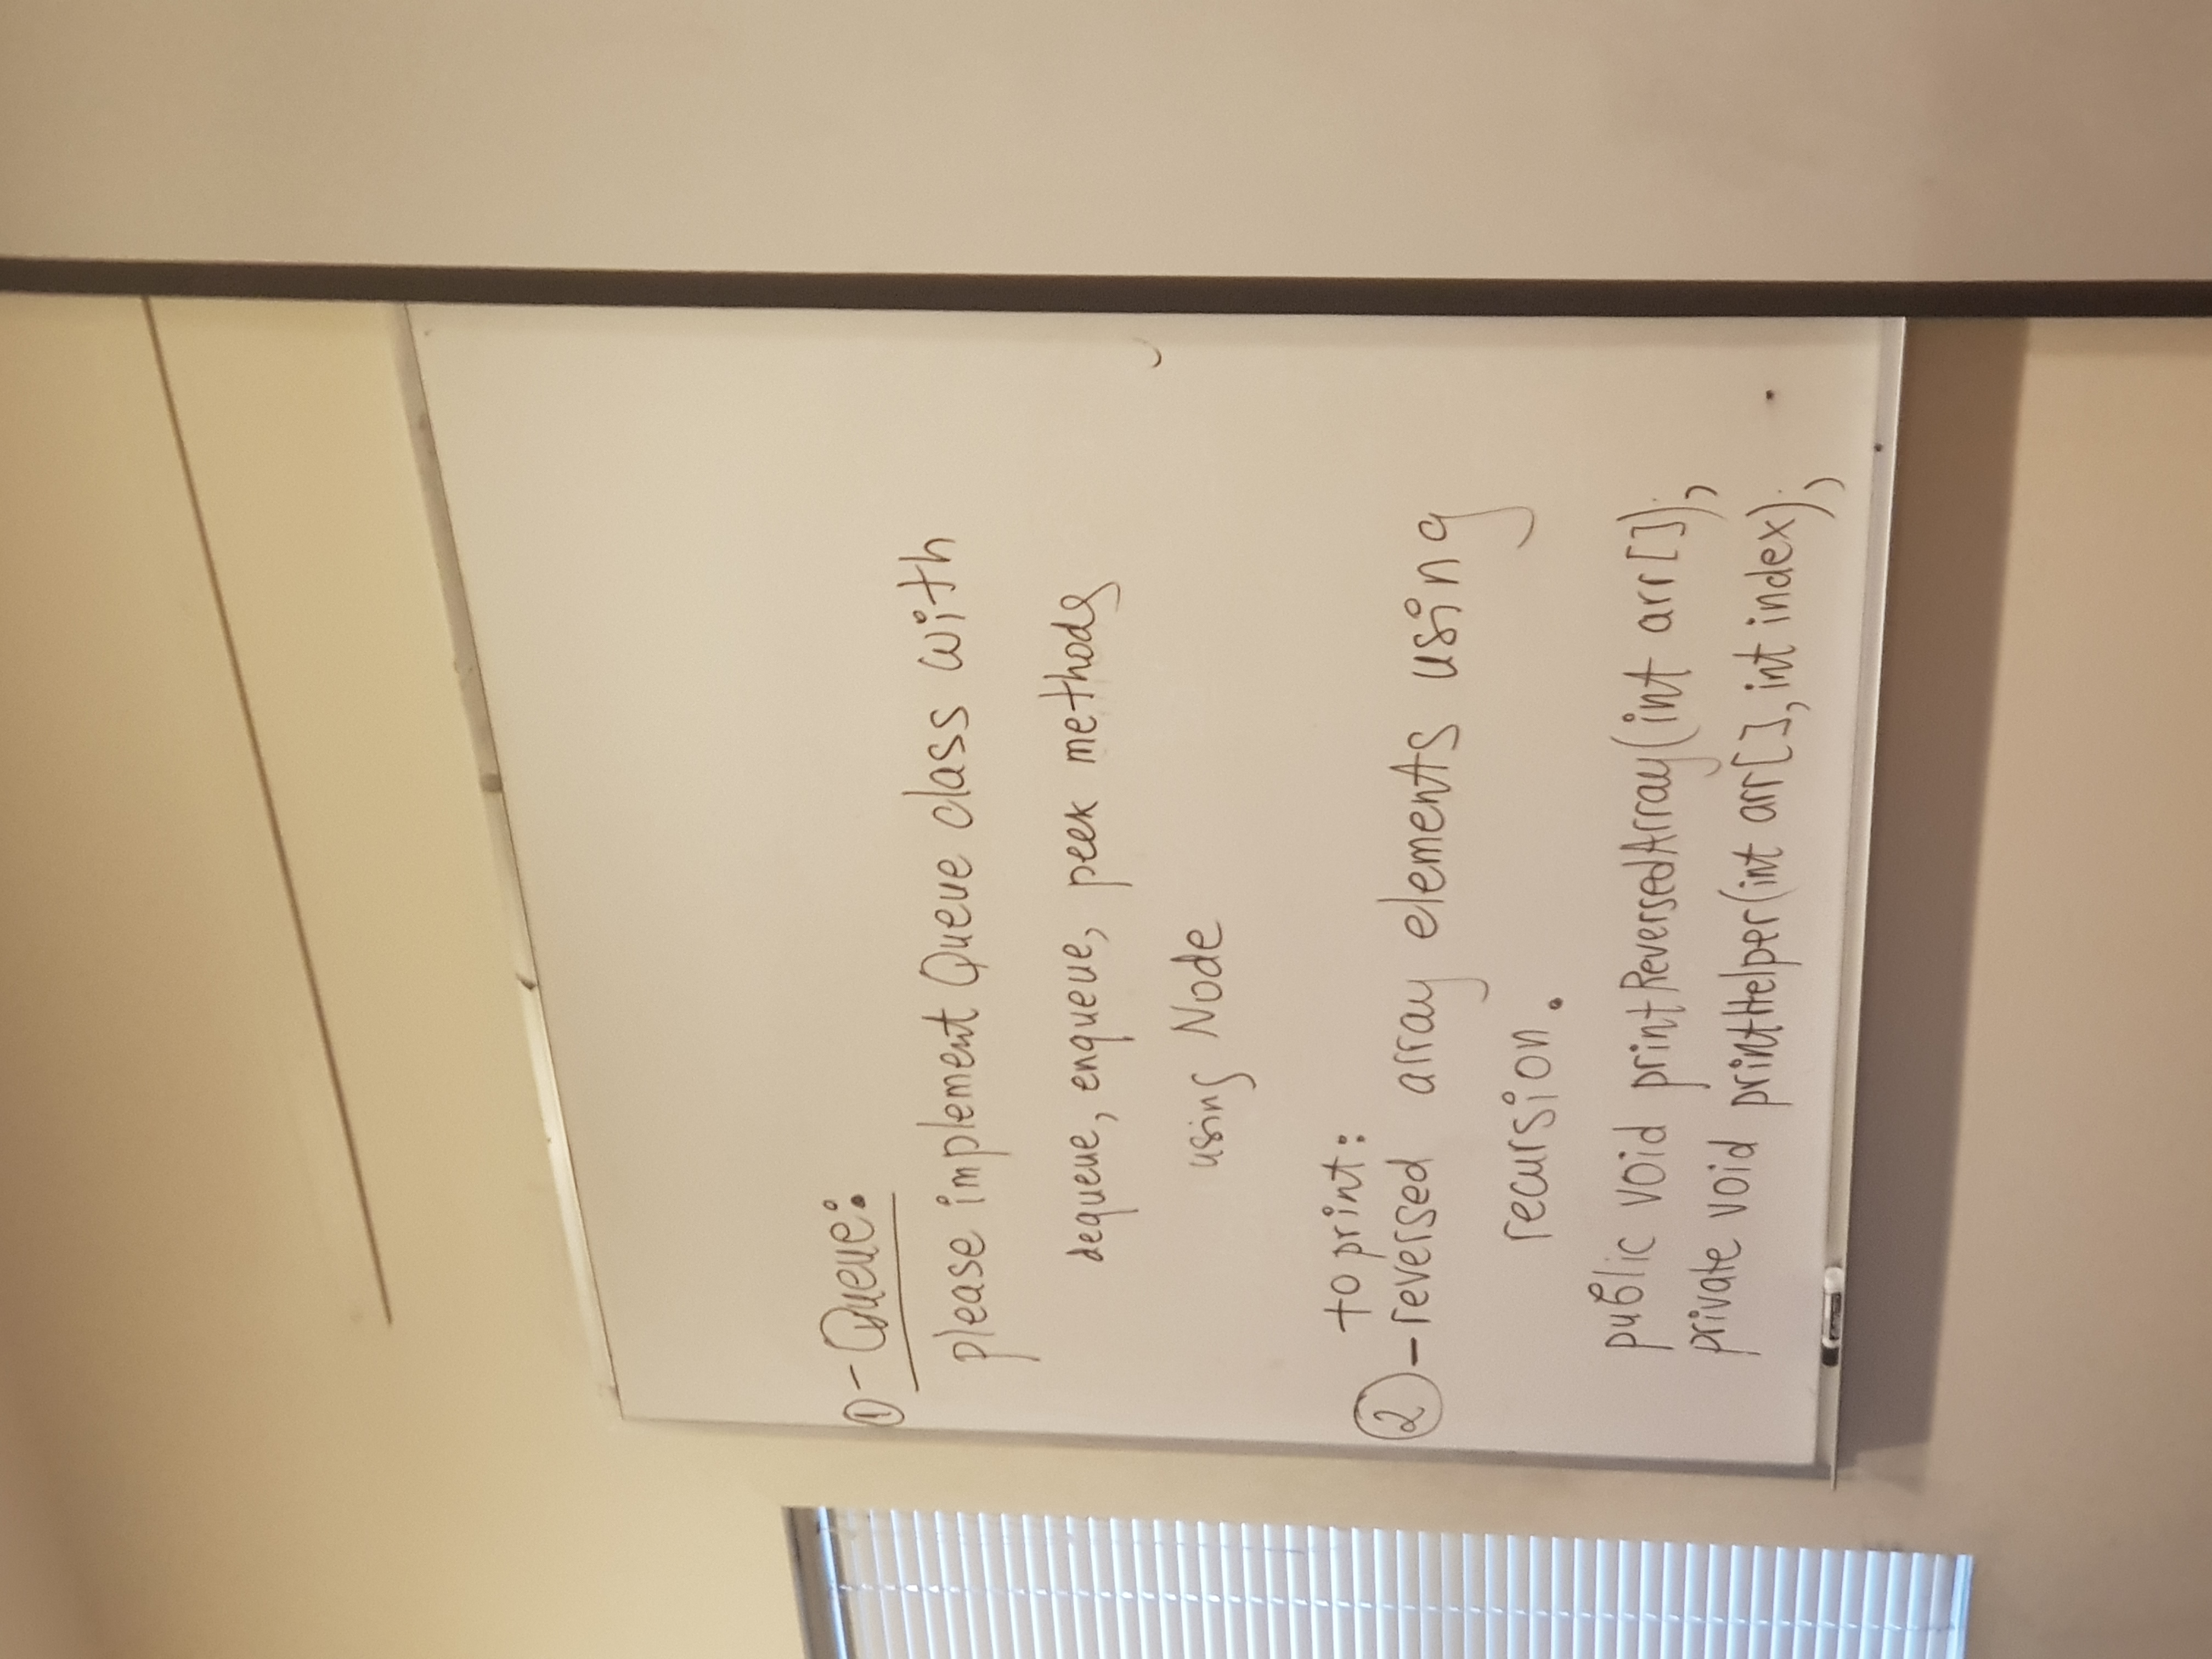 ① - Queue:
please implement Queue class with
dequeue, enqueue, peek methods
using Node
to print:
② - reversed array elements using
recursion.
public void printReversedArray(int arr[]);
private void printHelper(int arr[], int index);